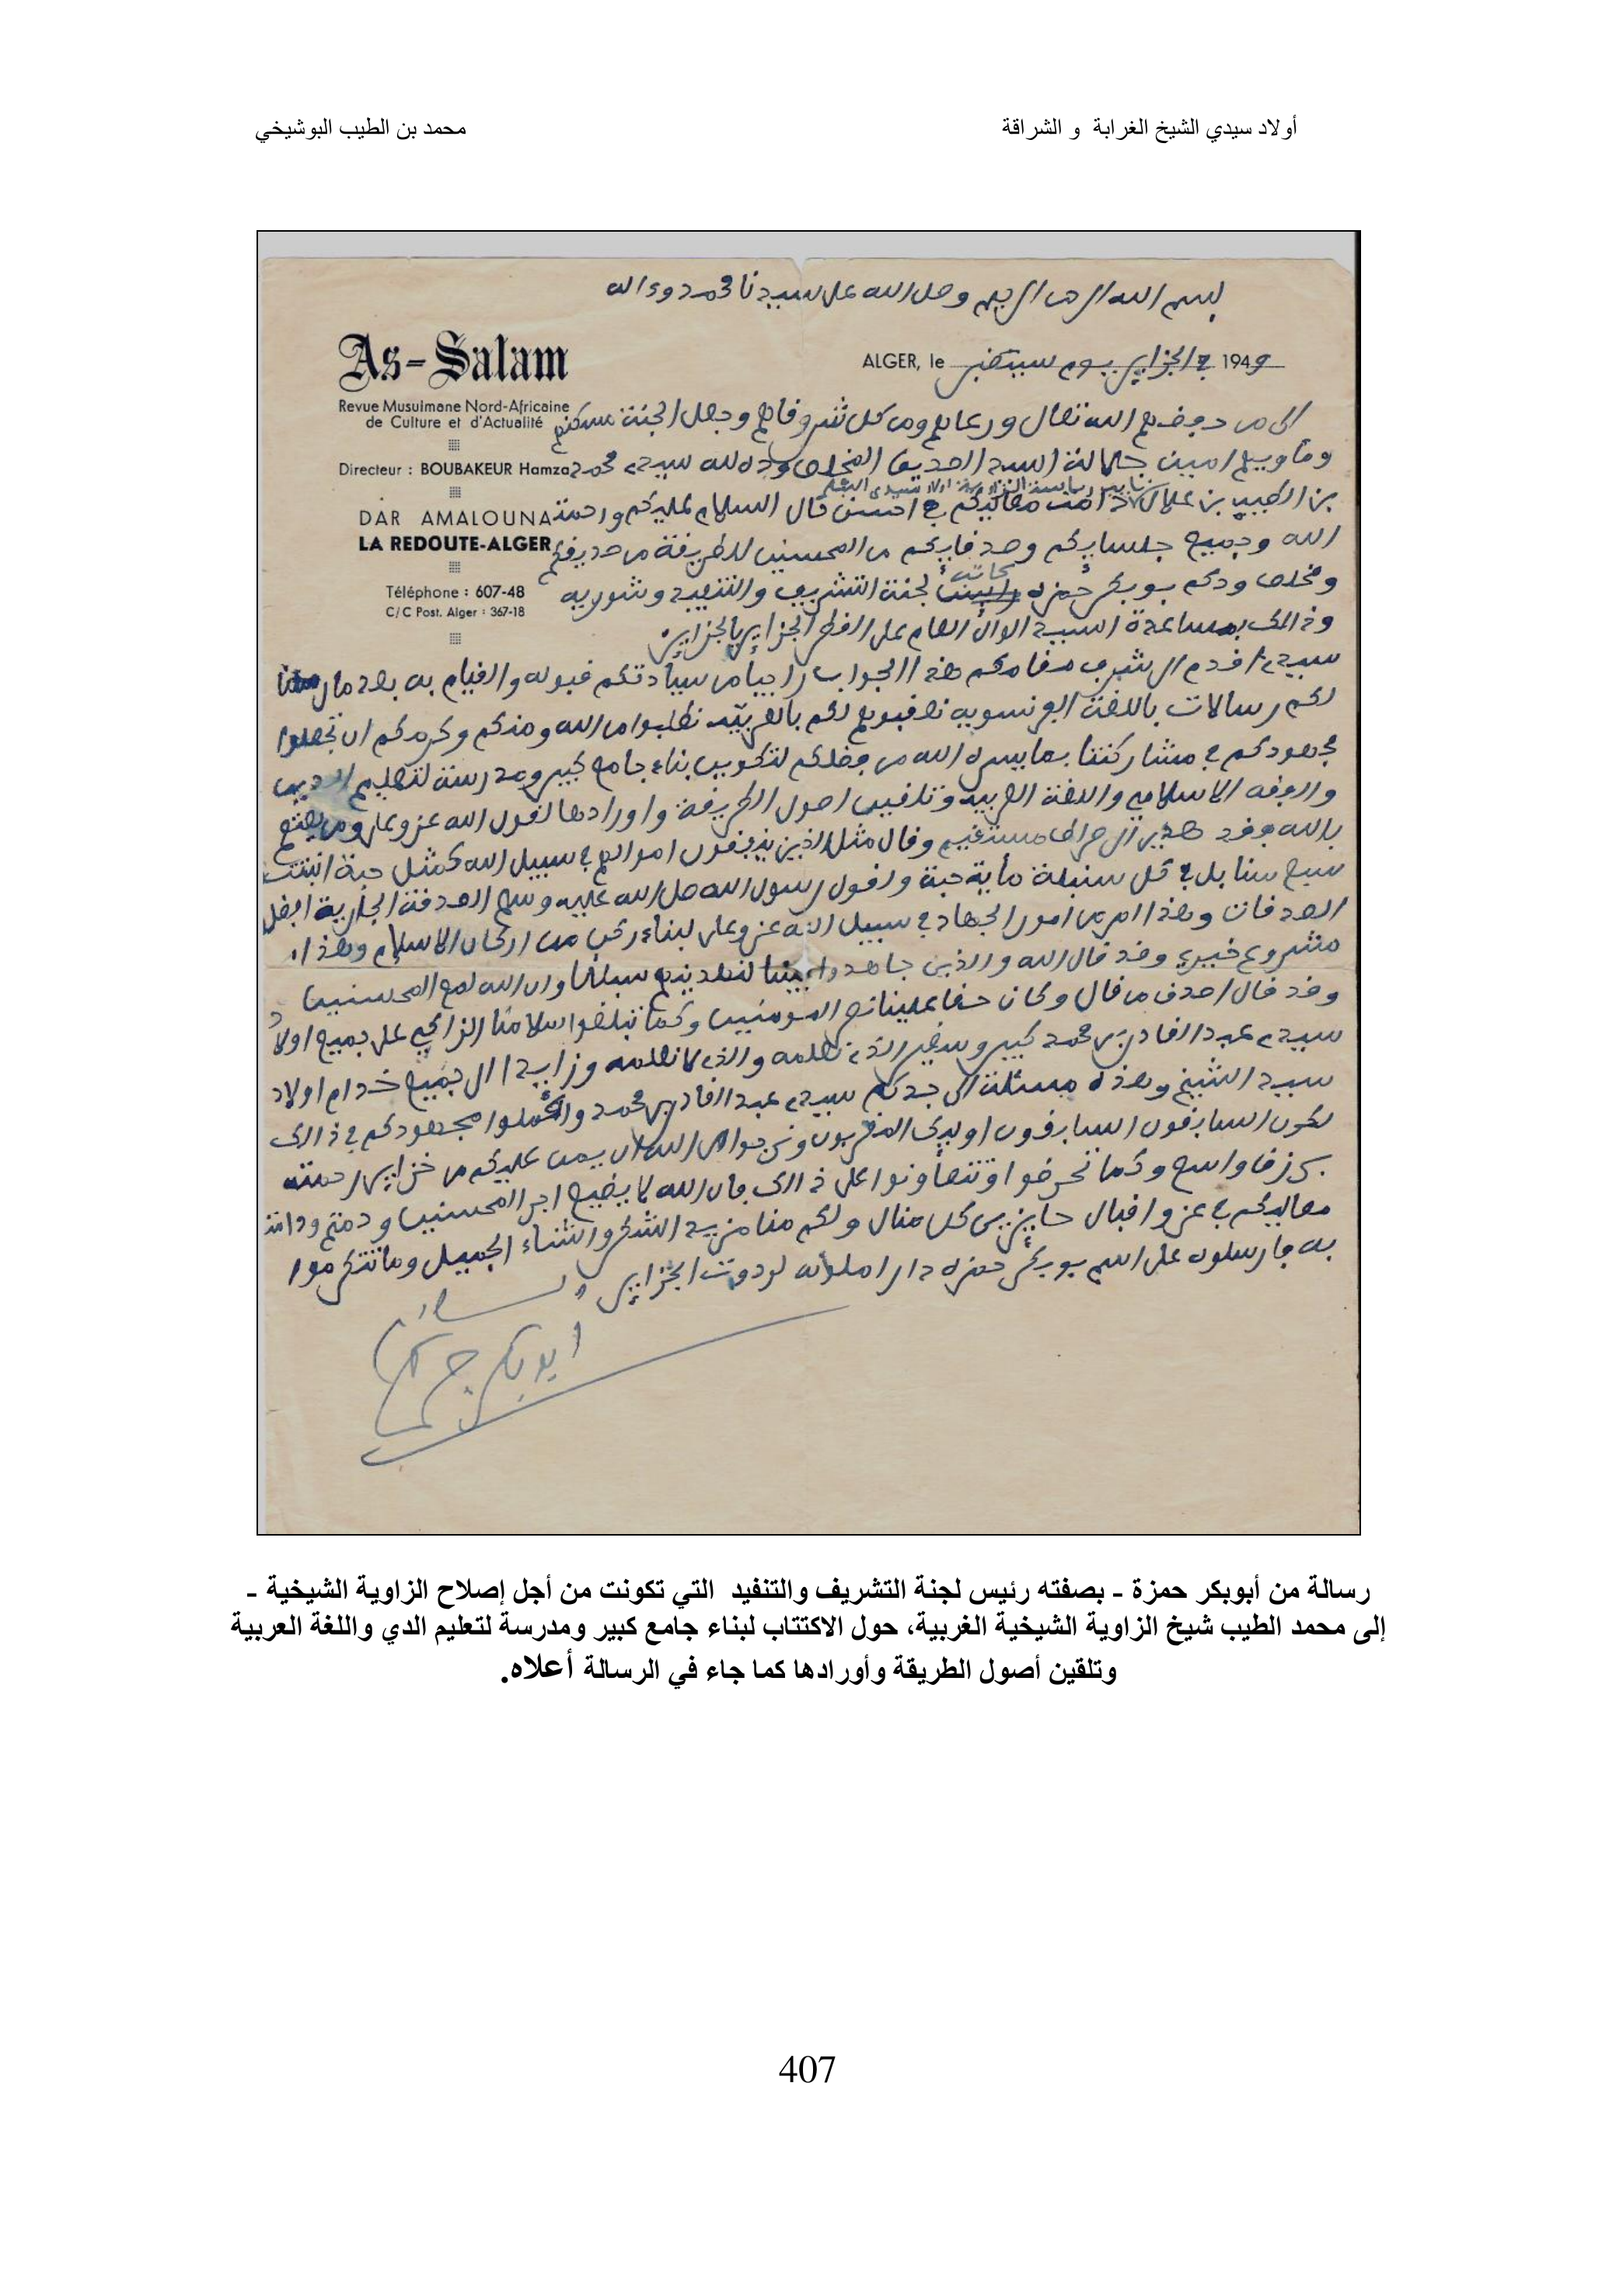 أولاد سيدي الشيخ الغرابة و الشراقة
محمد بن الطيب البوشيخي
بسم الله الرحمن الرحيم وصلى الله على سيدنا محمد وءاله
As-Salam
ALGER, le في الجزاير يوم سبتمبر 1949
Revue Musulmane Nord-Africaine
de Culture et d'Actualité
Directeur : BOUBAKEUR Hamza
DAR AMALOUNA
LA REDOUTE-ALGER
Téléphone : 607-48
C/C Post. Alger : 367-18
الى من حفضهم الله تعالى ورعاهم ومن كل شر وقاهم وجعل الجنة مسكنهم
السيد الصديق المخلص وده لله سيدي محمد
بن الطيب بن علال دامت معاليكم في احسن حال السلام عليكم ورحمة
الله وجميع جلسايكم وصدقايكم من المحسنين للطريقة من صديقكم
ومخلص ودكم بوبكر حمزه لجنة التشريف والتنفيد
وذالك بمساعدة السيد الوالى العام على القطر الجزايري بالجزاير
سيدي اقدم الى شريف مقامكم هذا الجواب راجيا من سيادتكم قبوله والقيام به بعد ما
لكم رسالات باللغة الفرنسويه بالعربية نطلبوا من الله ومنكم وكرمكم ان تجعلوا
مجهودكم في مشاركتنا بما يسره الله من فضلكم لتكوين بناء جامع كبير ومدرسة لتعليم الدين
والفقه الاسلامي واللغة العربية وتلقين اصول الطريقة واورادها لقول الله عز وعلى ومن يعتصم
بالله فقد هدي الى صراط مستقيم وقال مثل الذين ينفقون اموالهم في سبيل الله كمثل حبة انبتت
سبع سنابل في كل سنبلة مأية حبة ولقول رسول الله صلى الله عليه وسلم الصدقة الجارية افضل
الصدقات وهذا امر من امور الجهاد في سبيل الله عز وعلى لبناء ركن من اركان الاسلام وهذا
مشروع خيري وقد قال الله والذين جاهدوا فينا لنهدينهم سبلنا وان الله لمع المحسنين
وقد قال اصدق من قال وكان حقا علينا نصر المومنين وكما تبلغوا سلامنا الزاكي على جميع اولاد
سيدي عبد القادر بن محمد كبير وصغير الذي نعلمه والذي لا نعلمه وزايد الى جميع خدام اولاد
سيد الشيخ وهذه مسئلة الى جدكم سيدي عبد القادر بن محمد واكملوا مجهودكم في ذالك
لكون السابقون السابقون اوليك المقربون ونرجوا من الله ان يمن عليكم من خزاين رحمته
برزق واسع وكما تحرضوا وتتعاونوا على ذالك فان الله لا يضيع اجر المحسنين ودمتم ودامت
معاليكم في عز واقبال حايزين كل منال ولكم منا مزيد الشكر والثناء الجميل وما تتكرموا
به فارسلوه على اسم بوبكر حمزه دار املونه لردوت الجزاير
رسالة من أبوبكر حمزة - بصفته رئيس لجنة التشريف والتنفيد التي تكونت من أجل إصلاح الزاوية الشيخية -
إلى محمد الطيب شيخ الزاوية الشيخية الغربية، حول الاكتتاب لبناء جامع كبير ومدرسة لتعليم الدي واللغة العربية
وتلقين أصول الطريقة وأورادها كما جاء في الرسالة أعلاه.
407